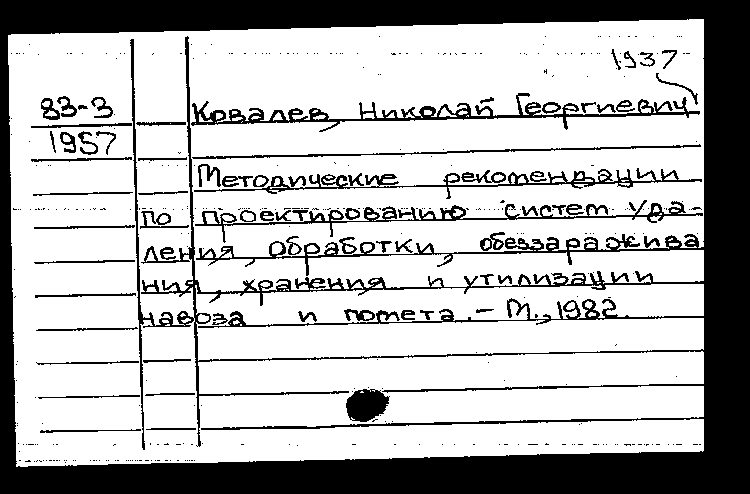 1937
83-3 Ковалев, Николай Георгиевич
1957
Методические рекомендации
по проектированию систем уда-
ления, обработки, обеззаражива
ния, хранения и утилизации
навоза и помета. - М., 1982.